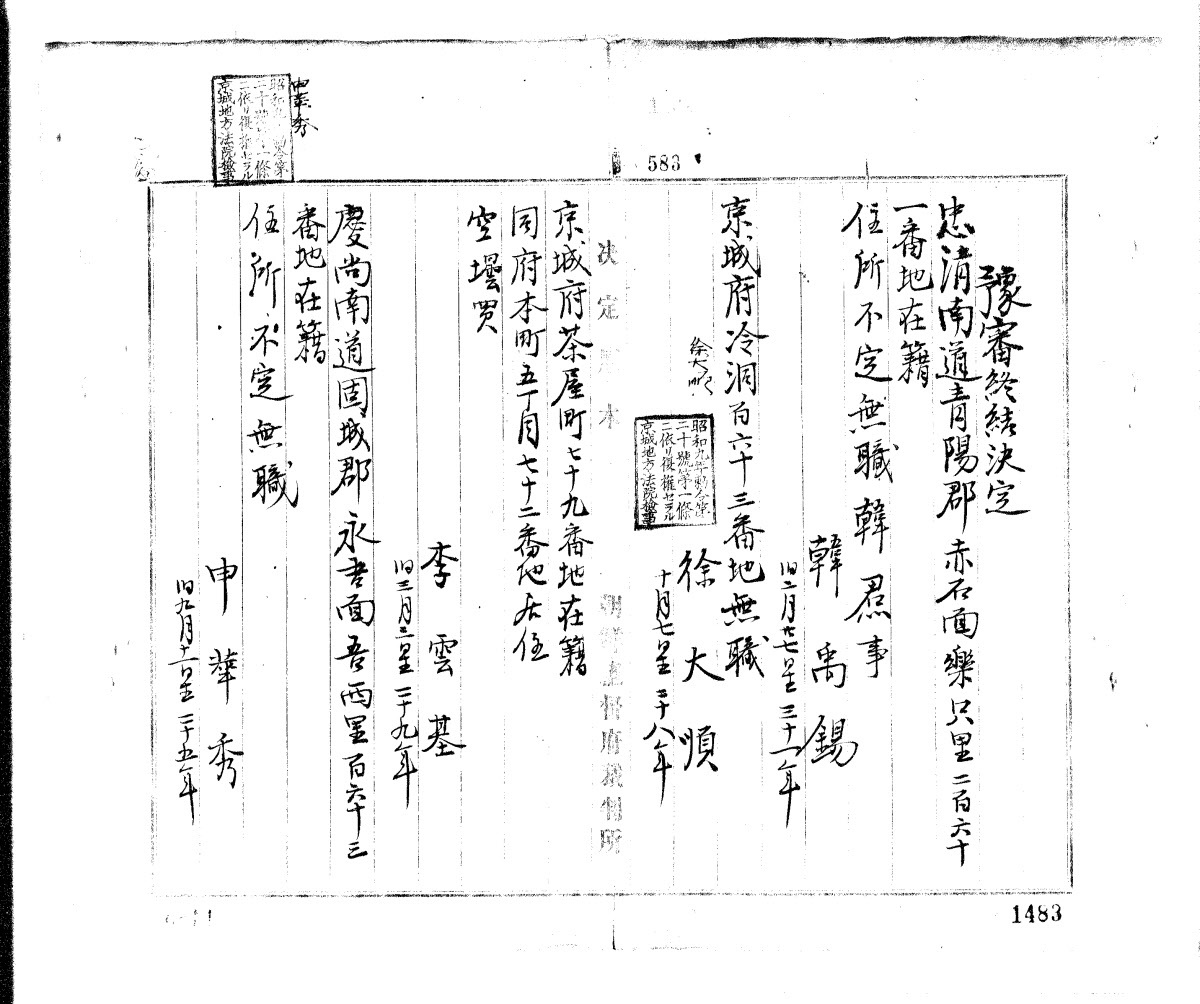 583
豫審終結決定
忠清南道青陽郡赤石面樂只里二百六十
一番地在籍
住所不定無職韓焄事
韓禹錫
旧二月廿七日生三十一年
京城府冷洞百六十三番地無職
徐大順
昭和九年勅令第
二十號第一條
ニ依リ復権セラル
京城地方法院検事
徐大順
十月七日生二十八年
決定原本
朝鮮總督府裁判所
京城府茶屋町七十九番地在籍
同府本町五丁目七十二番地居住
空壜買
李雲基
旧三月三日生二十九年
慶尚南道固城郡永吾面吾西里百六十三
番地在籍
申華秀
昭和九年勅令第
二十號第一條
ニ依リ復権セラル
京城地方法院検事
住所不定無職
申華秀
旧九月十一日生二十五年
1483